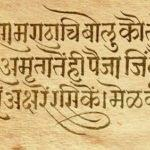 मराठाचि बोलु कौतु
अमृतातेंही पैजा जिं
अक्षरें रसिकें। मेळवी